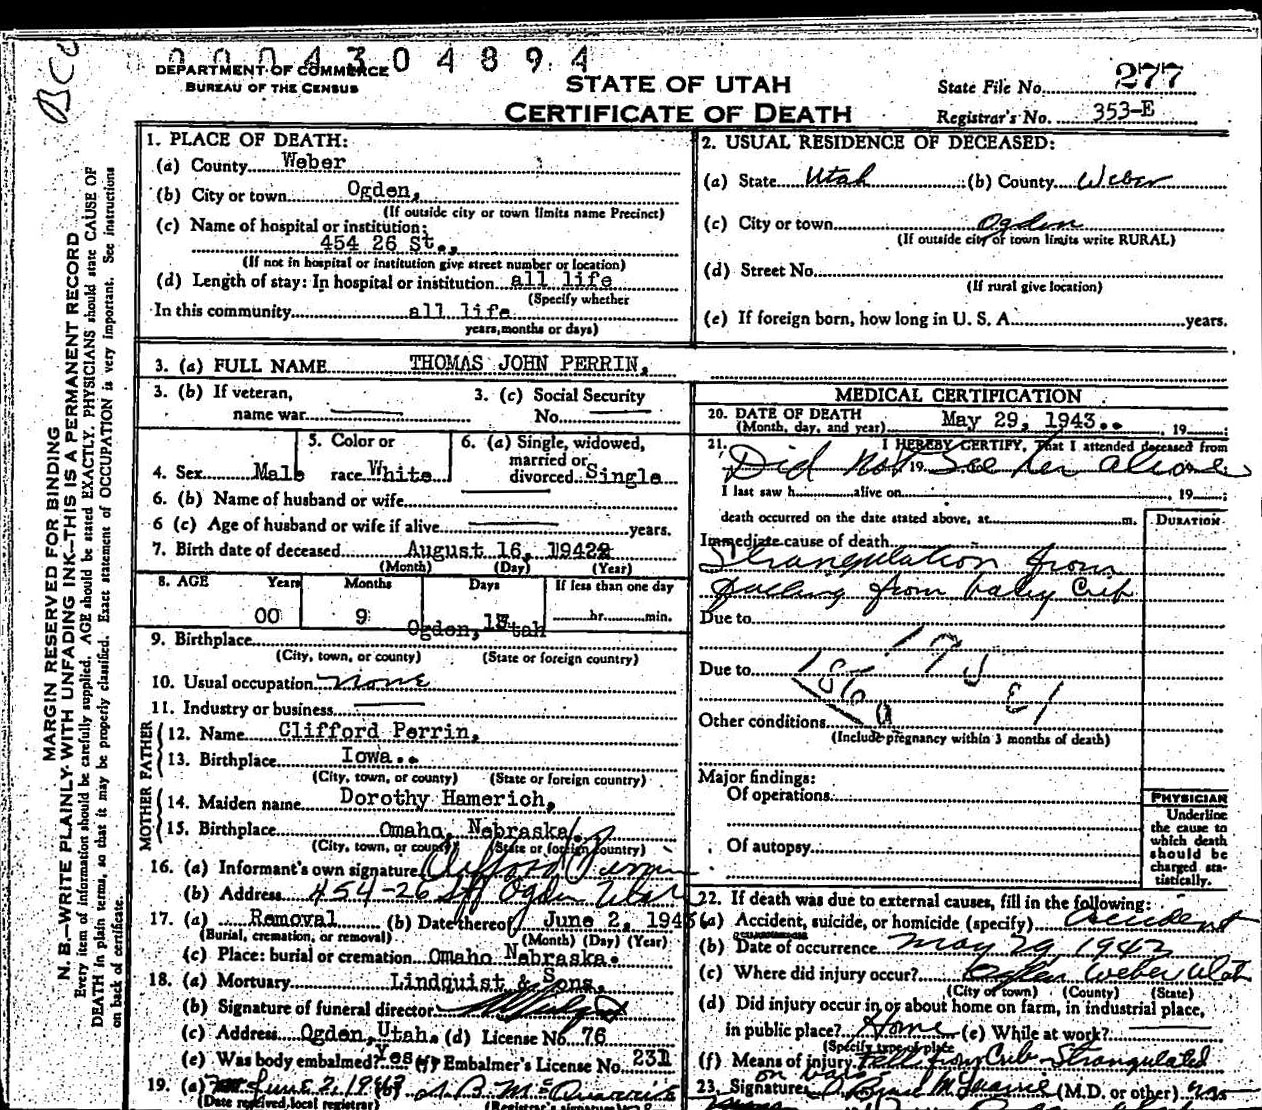 0004304894
DEPARTMENT OF COMMERCE
BUREAU OF THE CENSUS
STATE OF UTAH
CERTIFICATE OF DEATH
State File No. 277
Registrar's No. 353-E
MARGIN RESERVED FOR BINDING
N. B.—WRITE PLAINLY, WITH UNFADING INK—THIS IS A PERMANENT RECORD
Every item of information should be carefully supplied. AGE should be stated EXACTLY. PHYSICIANS should state CAUSE OF
DEATH in plain terms, so that it may be properly classified. Exact statement of OCCUPATION is very important. See instructions
on back of certificate.
1. PLACE OF DEATH:
(a) County Weber
(b) City or town Ogden,
(If outside city or town limits name Precinct)
(c) Name of hospital or institution:
454 26 St.,
(If not in hospital or institution give street number or location)
(d) Length of stay: In hospital or institution all life
(Specify whether
In this community all life
years, months or days)
2. USUAL RESIDENCE OF DECEASED:
(a) State Utah (b) County Weber
(c) City or town Ogden
(If outside city or town limits write RURAL)
(d) Street No.
(If rural give location)
(e) If foreign born, how long in U. S. A. years.
3. (a) FULL NAME THOMAS JOHN PERRIN,
3. (b) If veteran,
name war
3. (c) Social Security
No.
4. Sex Male
5. Color or
race White
6. (a) Single, widowed,
married or
divorced Single
6. (b) Name of husband or wife
6 (c) Age of husband or wife if alive years.
7. Birth date of deceased August 16, 1942
(Month) (Day) (Year)
8. AGE Years Months Days If less than one day
00 9 hr. min.
9. Birthplace Ogden, Utah
(City, town, or county) (State or foreign country)
10. Usual occupation none
11. Industry or business
FATHER
12. Name Clifford Perrin,
13. Birthplace Iowa..
(City, town, or county) (State or foreign country)
MOTHER
14. Maiden name Dorothy Hamerich,
15. Birthplace Omaho, Nebraska
(City, town, or county) (State or foreign country)
16. (a) Informant's own signature Clifford Perrin
(b) Address 454-26 St Ogden Utah
17. (a) Removal (b) Date thereof June 2, 194
(Burial, cremation, or removal) (Month) (Day) (Year)
(c) Place: burial or cremation Omaho Nebraska.
18. (a) Mortuary Lindquist & Sons,
(b) Signature of funeral director
(c) Address Ogden, Utah. (d) License No. 76
(e) Was body embalmed? Yes (f) Embalmer's License No. 231
19. (a) June 2, 1943
(Date received local registrar) (Registrar's signature)
MEDICAL CERTIFICATION
20. DATE OF DEATH
(Month, day, and year) May 29, 1943.. 19
21. I HEREBY CERTIFY, That I attended deceased from
Did not 19 see her alive
I last saw h alive on , 19
death occurred on the date stated above, at m.
DURATION
Immediate cause of death
Strangulation from
falling from baby Crib
Due to
Due to
186 a
E1
Other conditions
(Include pregnancy within 3 months of death)
Major findings:
Of operations
Of autopsy
PHYSICIAN
Underline
the cause to
which death
should be
charged sta-
tistically.
22. If death was due to external causes, fill in the following:
(a) Accident, suicide, or homicide (specify) Accident
(b) Date of occurrence May 29 1943
(c) Where did injury occur? Ogden Weber Utah
(City or town) (County) (State)
(d) Did injury occur in or about home on farm, in industrial place,
in public place? Home (e) While at work?
(Specify type of place
(f) Means of injury fell from Crib Strangulated
on
23. Signature (M.D. or other)